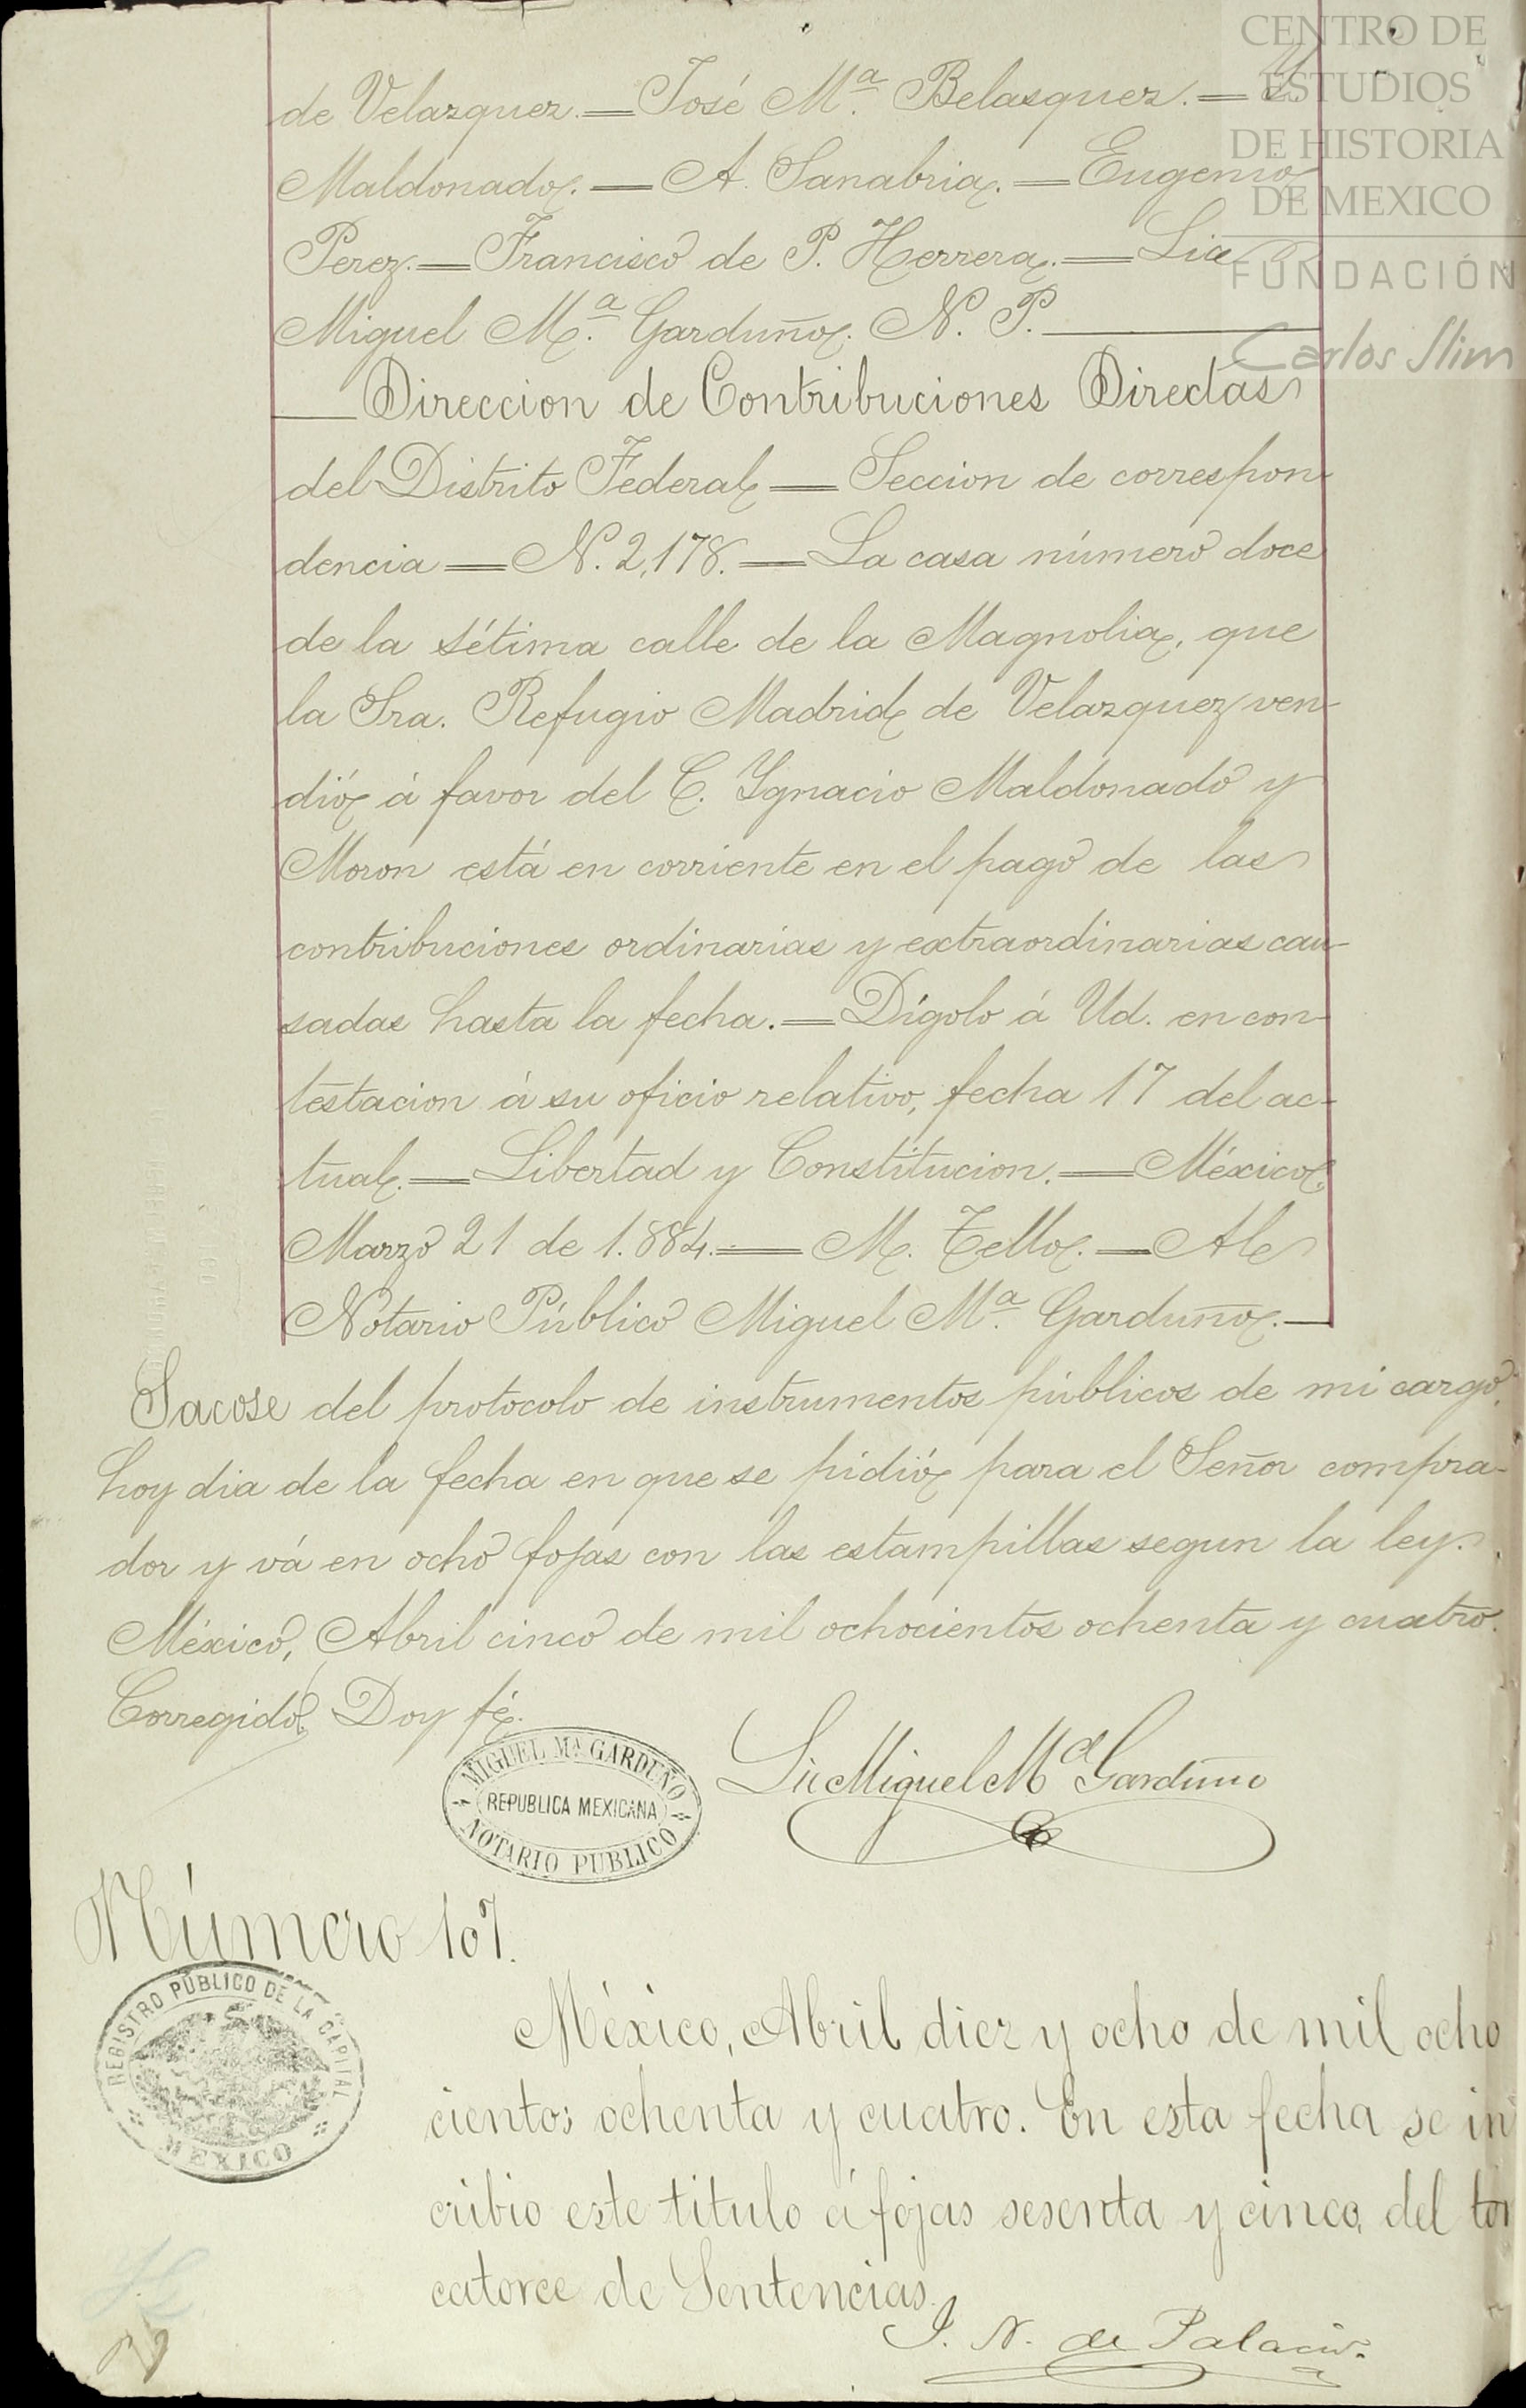 CENTRO DE
ESTUDIOS
DE HISTORIA
DE MEXICO
FUNDACIÓN
Carlos Slim
de Velazquez.=José M.ª Belasquez.=Y.
Maldonado.=A. Sanabria.=Eugenio
Perez.=Francisco de P. Herrera.=Lic
Miguel M.ª Garduño. N. P.
Direccion de Contribuciones Directas
del Distrito Federal=Seccion de correspon-
dencia=N. 2,178.=La casa número doce
de la sétima calle de la Magnolia, que
la Sra. Refugio Madrid de Velazquez ven-
dió á favor del C. Ygnacio Maldonado y
Moron está en corriente en el pago de las
contribuciones ordinarias y extraordinarias cau-
sadas hasta la fecha.=Dígolo á Ud. en con-
testacion á su oficio relativo, fecha 17 del ac-
tual.=Libertad y Constitucion.=México,
Marzo 21 de 1.884.=M. Tello.=Al
Notario Público Miguel M.ª Garduño.
Sacose del protocolo de instrumentos públicos de mi cargo,
hoy dia de la fecha en que se pidió para el Señor compra-
dor y vá en ocho fojas con las estampillas segun la ley.
México, Abril cinco de mil ochocientos ochenta y cuatro.
Corregido, Doy fé.
MIGUEL Mª GARDUÑO
REPUBLICA MEXICANA
NOTARIO PUBLICO
Lic Miguel Mª Garduño
Número 107.
REGISTRO PÚBLICO DE LA CAPITAL
MEXICO
México, Abril diez y ocho de mil ocho
cientos ochenta y cuatro. En esta fecha se in
cribio este titulo á fojas sesenta y cinco, del tom
catorce de Sentencias.
J. N. de Palacio.